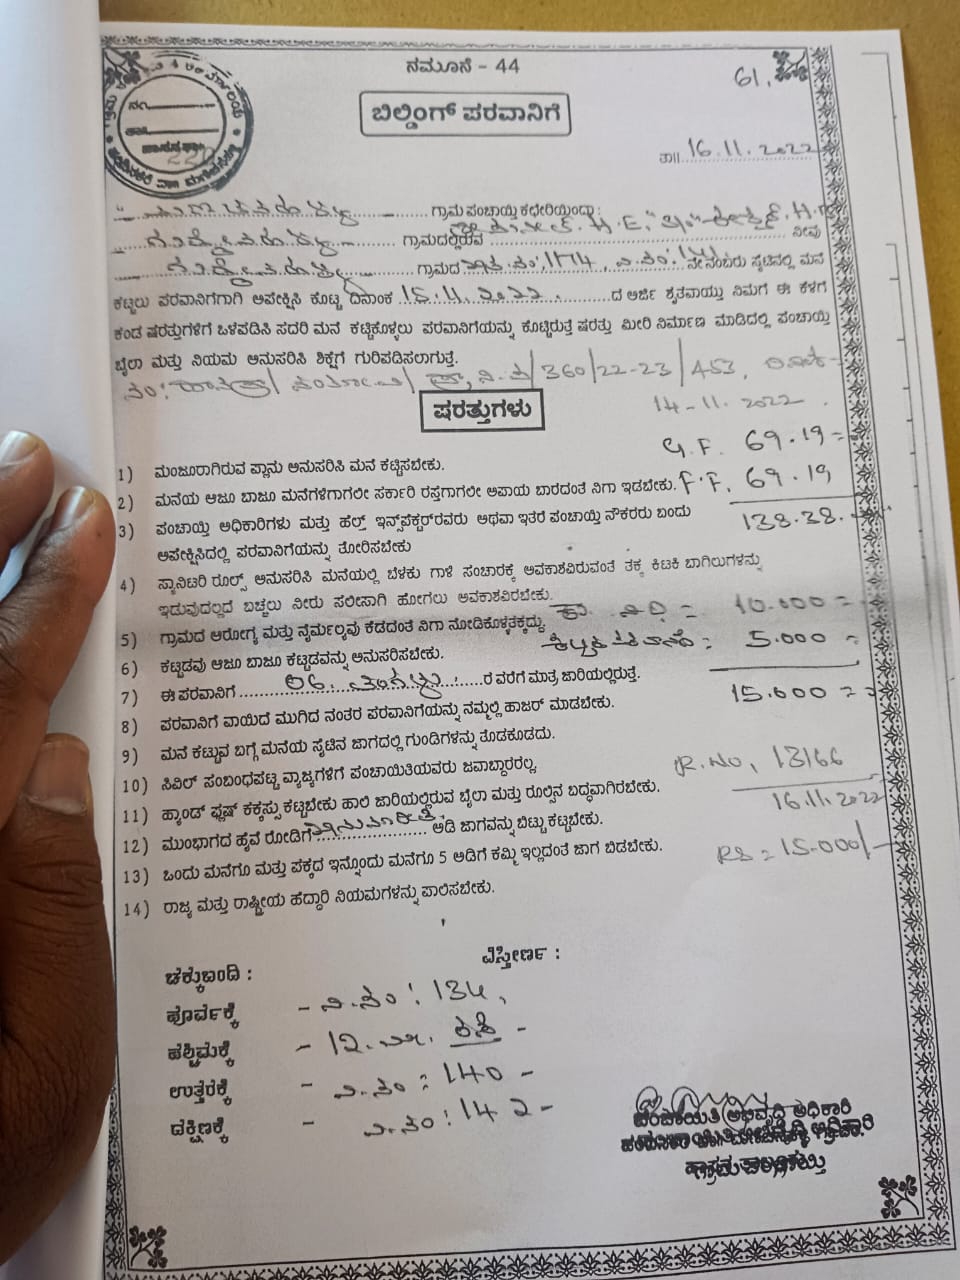 ನಮೂನೆ - 44
61.
ಬಿಲ್ಡಿಂಗ್ ಪರವಾನಿಗೆ
ತಾ॥ 16.11.2022
ಗ್ರಾಮ ಪಂಚಾಯ್ತಿ ಕಛೇರಿಯಿಂದಾ :
ಗ್ರಾಮದಲ್ಲಿರುವ H.E. H. ನೀವು
ಗ್ರಾಮದ ನೇ ನಂಬರು ಸೈಟಿನಲ್ಲಿ ಮನೆ
ಕಟ್ಟಲು ಪರವಾನಿಗೆಗಾಗಿ ಅಪೇಕ್ಷಿಸಿ ಕೊಟ್ಟ ದಿನಾಂಕ 15.11.2022 ದ ಅರ್ಜಿ ಶೃತವಾಯ್ತು ನಿಮಗೆ ಈ ಕೆಳಗೆ
ಕಂಡ ಷರತ್ತುಗಳಿಗೆ ಒಳಪಡಿಸಿ ಸದರಿ ಮನೆ ಕಟ್ಟಿಕೊಳ್ಳಲು ಪರವಾನಿಗೆಯನ್ನು ಕೊಟ್ಟಿರುತ್ತೆ ಷರತ್ತು ಮೀರಿ ನಿರ್ಮಾಣ ಮಾಡಿದಲ್ಲಿ ಪಂಚಾಯ್ತಿ
ಬೈಲಾ ಮತ್ತು ನಿಯಮ ಅನುಸರಿಸಿ ಶಿಕ್ಷೆಗೆ ಗುರಿಪಡಿಸಲಾಗುತ್ತೆ.
360/22-23/453,
14-11-2022.
ಷರತ್ತುಗಳು
G.F. 69.19=
1) ಮಂಜೂರಾಗಿರುವ ಪ್ಲಾನು ಅನುಸರಿಸಿ ಮನೆ ಕಟ್ಟಿಸಬೇಕು.
2) ಮನೆಯ ಆಜೂ ಬಾಜೂ ಮನೆಗಳಿಗಾಗಲೀ ಸರ್ಕಾರಿ ರಸ್ತೆಗಾಗಲೀ ಅಪಾಯ ಬಾರದಂತೆ ನಿಗಾ ಇಡಬೇಕು. F.F. 69.19
3) ಪಂಚಾಯ್ತಿ ಅಧಿಕಾರಿಗಳು ಮತ್ತು ಹೆಲ್ತ್ ಇನ್ಸ್‌ಪೆಕ್ಟರ್‌ರವರು ಅಥವಾ ಇತರೆ ಪಂಚಾಯ್ತಿ ನೌಕರರು ಬಂದು 138.38.
ಅಪೇಕ್ಷಿಸಿದಲ್ಲಿ ಪರವಾನಿಗೆಯನ್ನು ತೋರಿಸಬೇಕು
4) ಸ್ಯಾನಿಟರಿ ರೂಲ್ಸ್ ಅನುಸರಿಸಿ ಮನೆಯಲ್ಲಿ ಬೆಳಕು ಗಾಳಿ ಸಂಚಾರಕ್ಕೆ ಅವಕಾಶವಿರುವಂತೆ ತಕ್ಕ ಕಿಟಕಿ ಬಾಗಿಲುಗಳನ್ನು
ಇಡುವುದಲ್ಲದೆ ಬಚ್ಚಲು ನೀರು ಸಲೀಸಾಗಿ ಹೋಗಲು ಅವಕಾಶವಿರಬೇಕು.
5) ಗ್ರಾಮದ ಆರೋಗ್ಯ ಮತ್ತು ನೈರ್ಮಲ್ಯವು ಕೆಡದಂತೆ ನಿಗಾ ನೋಡಿಕೊಳ್ಳತಕ್ಕದ್ದು = 10.000=
6) ಕಟ್ಟಡವು ಆಜೂ ಬಾಜೂ ಕಟ್ಟಡವನ್ನು ಅನುಸರಿಸಬೇಕು. = 5.000 =
7) ಈ ಪರವಾನಿಗೆ 06, ರ ವರೆಗೆ ಮಾತ್ರ ಜಾರಿಯಲ್ಲಿರುತ್ತೆ.
15.000 =
8) ಪರವಾನಿಗೆ ವಾಯಿದೆ ಮುಗಿದ ನಂತರ ಪರವಾನಿಗೆಯನ್ನು ನಮ್ಮಲ್ಲಿ ಹಾಜರ್ ಮಾಡಬೇಕು.
9) ಮನೆ ಕಟ್ಟುವ ಬಗ್ಗೆ ಮನೆಯ ಸೈಟಿನ ಜಾಗದಲ್ಲಿ ಗುಂಡಿಗಳನ್ನು ತೊಡಕೂಡದು.
10) ಸಿವಿಲ್ ಸಂಬಂಧಪಟ್ಟ ವ್ಯಾಜ್ಯಗಳಿಗೆ ಪಂಚಾಯಿತಿಯವರು ಜವಾಬ್ದಾರರಲ್ಲ. R.No, 13166
11) ಹ್ಯಾಂಡ್ ಫ್ಲಷ್ ಕಕ್ಕಸ್ಸು ಕಟ್ಟಬೇಕು ಹಾಲಿ ಜಾರಿಯಲ್ಲಿರುವ ಬೈಲಾ ಮತ್ತು ರೂಲ್ಸಿನ ಬದ್ಧವಾಗಿರಬೇಕು. 16.11.2022
12) ಮುಂಭಾಗದ ಹೈವೆ ರೋಡಿಗೆ ಅಡಿ ಜಾಗವನ್ನು ಬಿಟ್ಟು ಕಟ್ಟಬೇಕು.
13) ಒಂದು ಮನೆಗೂ ಮತ್ತು ಪಕ್ಕದ ಇನ್ನೊಂದು ಮನೆಗೂ 5 ಅಡಿಗೆ ಕಮ್ಮಿ ಇಲ್ಲದಂತೆ ಜಾಗ ಬಿಡಬೇಕು. RS = 15.000/-
14) ರಾಜ್ಯ ಮತ್ತು ರಾಷ್ಟ್ರೀಯ ಹೆದ್ದಾರಿ ನಿಯಮಗಳನ್ನು ಪಾಲಿಸಬೇಕು.
ಚೆಕ್ಕುಬಂದಿ : ವಿಸ್ತೀರ್ಣ :
ಪೂರ್ವಕ್ಕೆ - ವಿ.ನಂ: 134,
ಪಶ್ಚಿಮಕ್ಕೆ - 12.ಮೀ. ರಸ್ತೆ -
ಉತ್ತರಕ್ಕೆ - ವಿ.ನಂ: 140 -
ದಕ್ಷಿಣಕ್ಕೆ - ವಿ.ನಂ: 142-
ಪಂಚಾಯಿತಿ ಅಭಿವೃದ್ಧಿ ಅಧಿಕಾರಿ